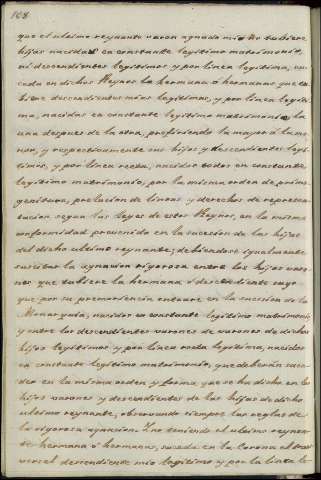 108
que el ultimo reynante varon agnado mio no tubiere
hijas nacidas en constante legitimo matrimonio,
ni descendientes legitimos y por linea legitima, suc-
ceda en dichos Reynos la hermana ó hermanas que tu-
biere descendientes mios legitimos, y por linea legiti-
ma, nacidas en constante legitimo matrimonio, la
una despues de la otra, prefiriendo la mayor á la me-
nor, y respectivamente sus hijos y descendientes legi-
timos, y por linea recta, nacidos todos en constante
legitimo matrimonio, por la misma orden de primo-
genitura, prelacion de lineas y derechos de represen-
tacion segun las leyes de estos Reynos, en la misma
conformidad prevenida en la sucesion de las hijas
del dicho ultimo reynante; debiendose igualmente
suscitar la agnacion rigorosa entre los hijos varo-
nes que tubiere la hermana ó descendiente suyo
que por su premoriencia entrare en la sucesion de la
Monarquia, nacidos en constante legitimo matrimonio
y entre los descendientes varones de varones de dichos
hijos legitimos y por linea recta legitima, nacidos
en constante legitimo matrimonio, que deberán suce-
der en la misma orden y forma, que se ha dicho en los
hijos varones y descendientes de las hijas de dicho
ultimo reynante, observando siempre las reglas de
la rigorosa agnacion. Y no teniendo el ultimo reynan-
te hermana ó hermanas, suceda en la Corona el trans-
versal descendiente mio legitimo y por la linea le-